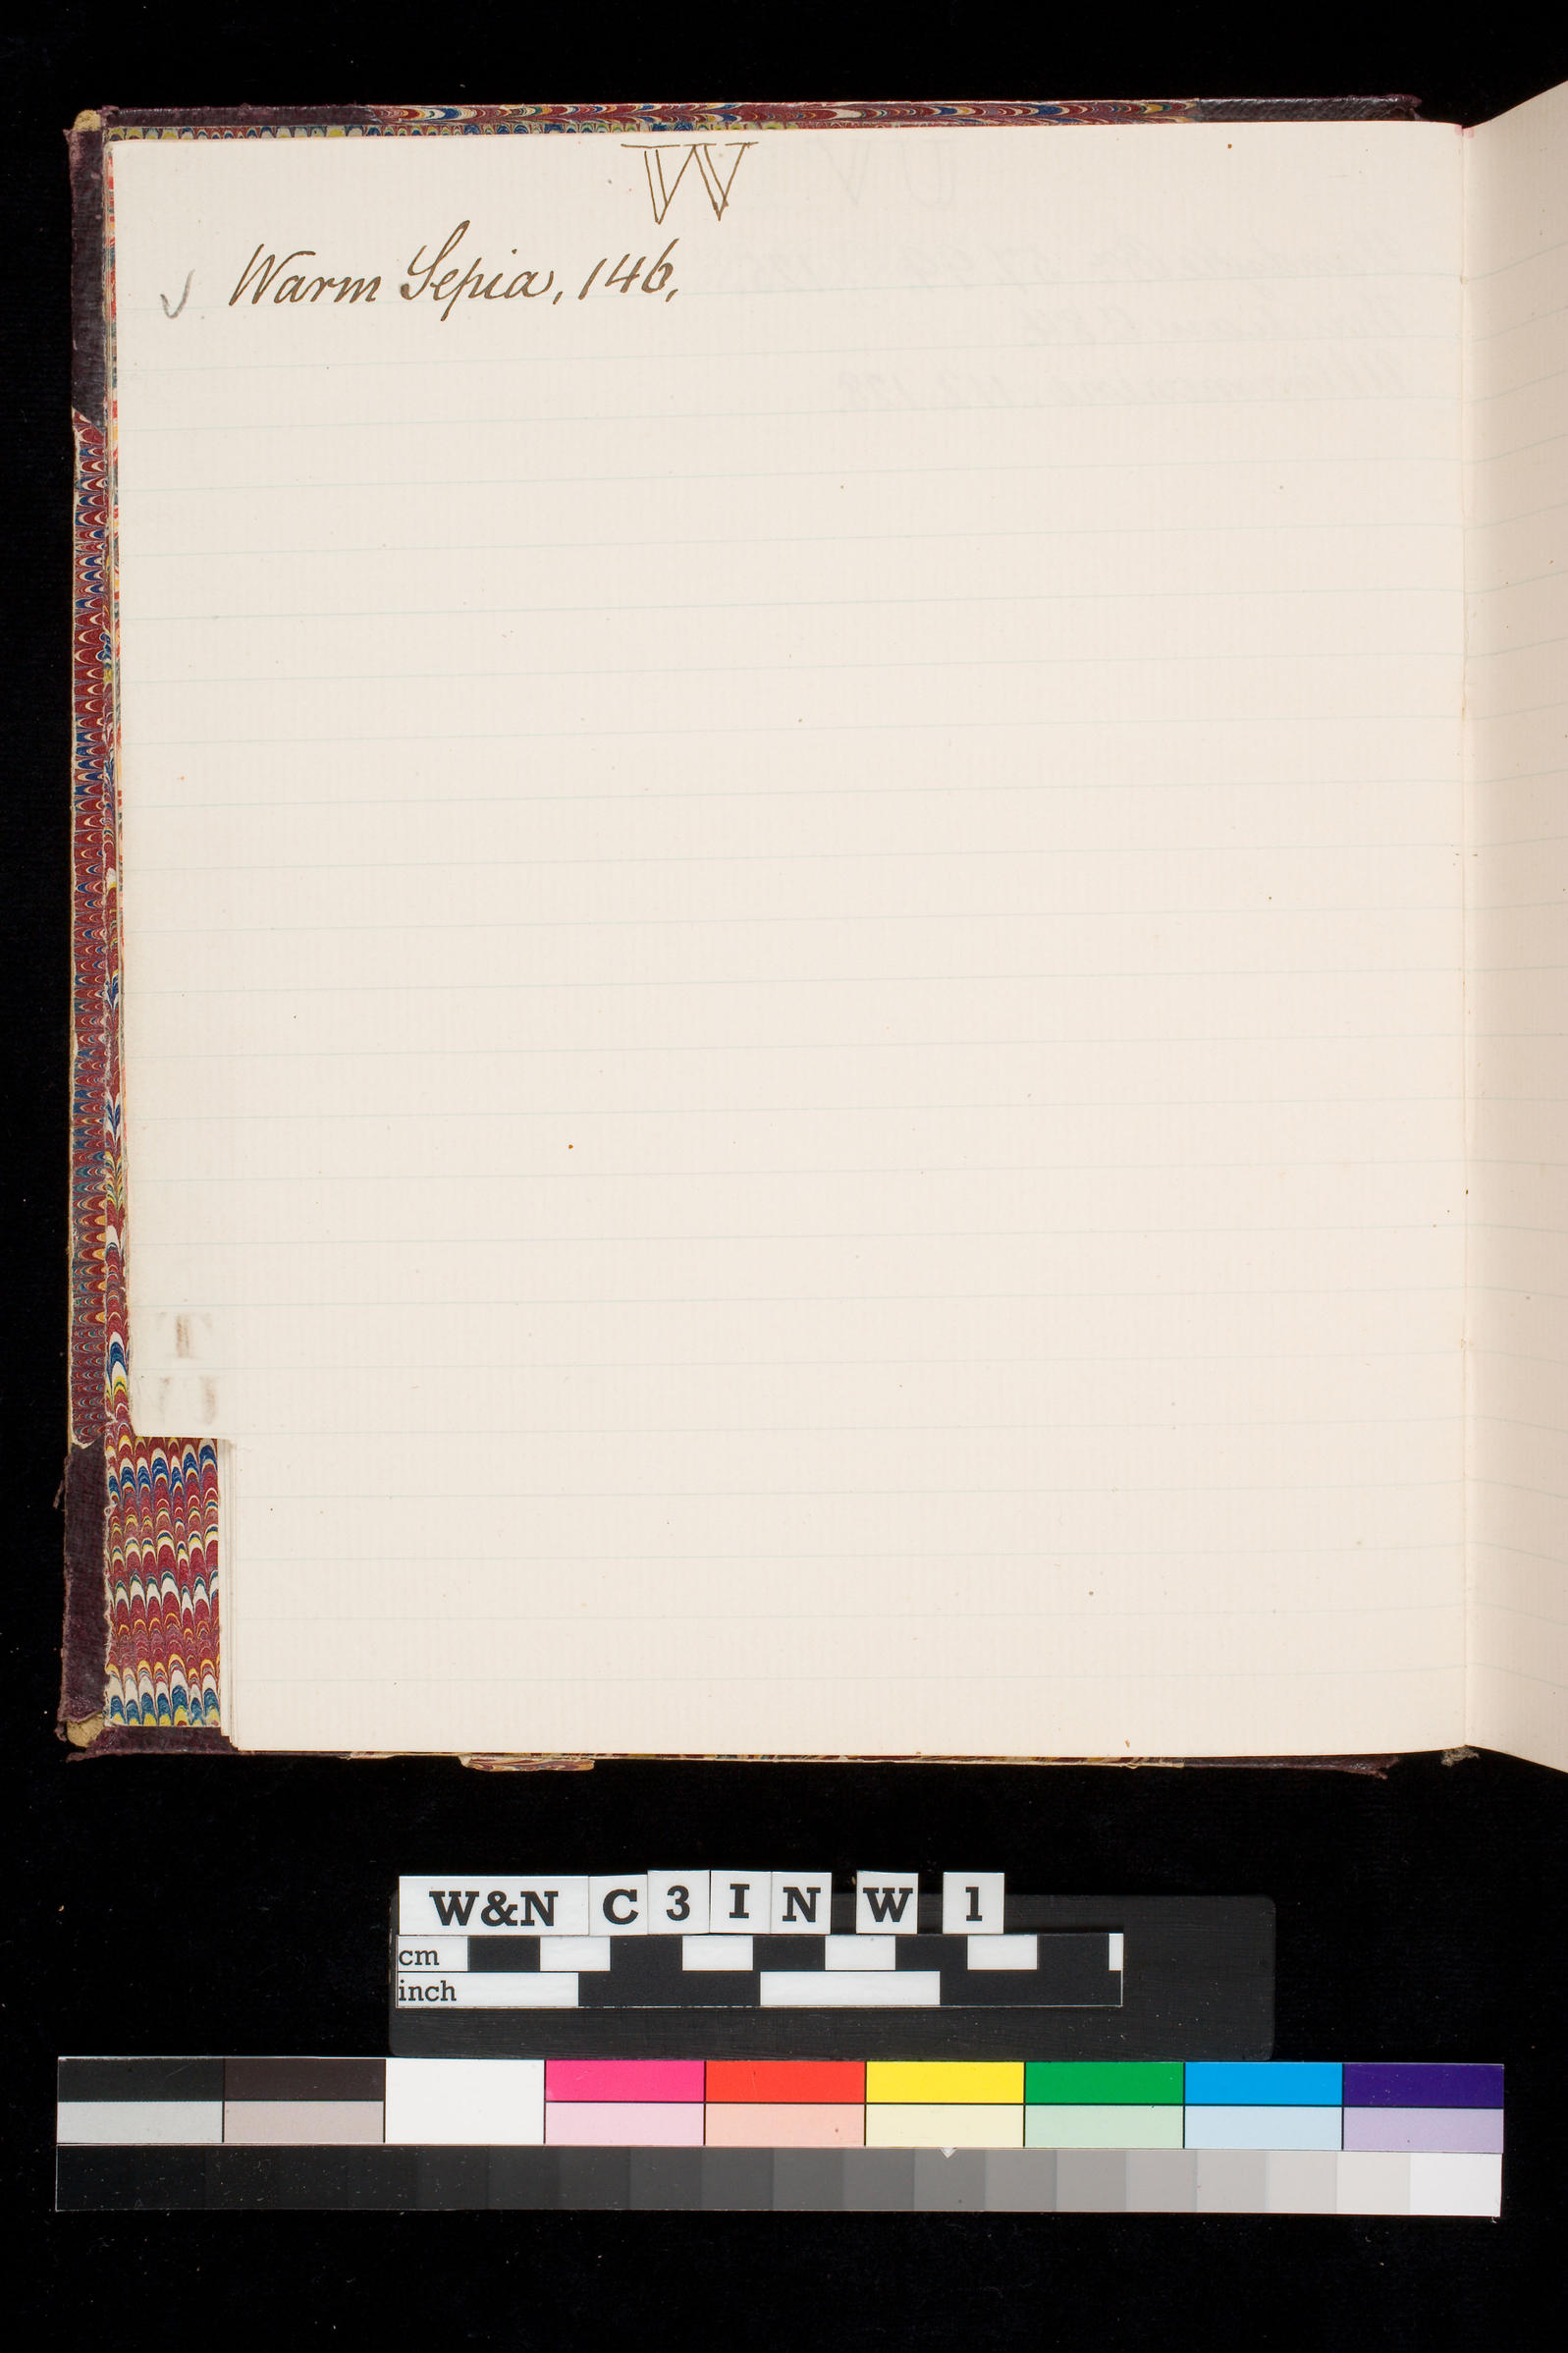 W
Warm Sepia, 146,
W&N C 3 I N W 1
cm
inch